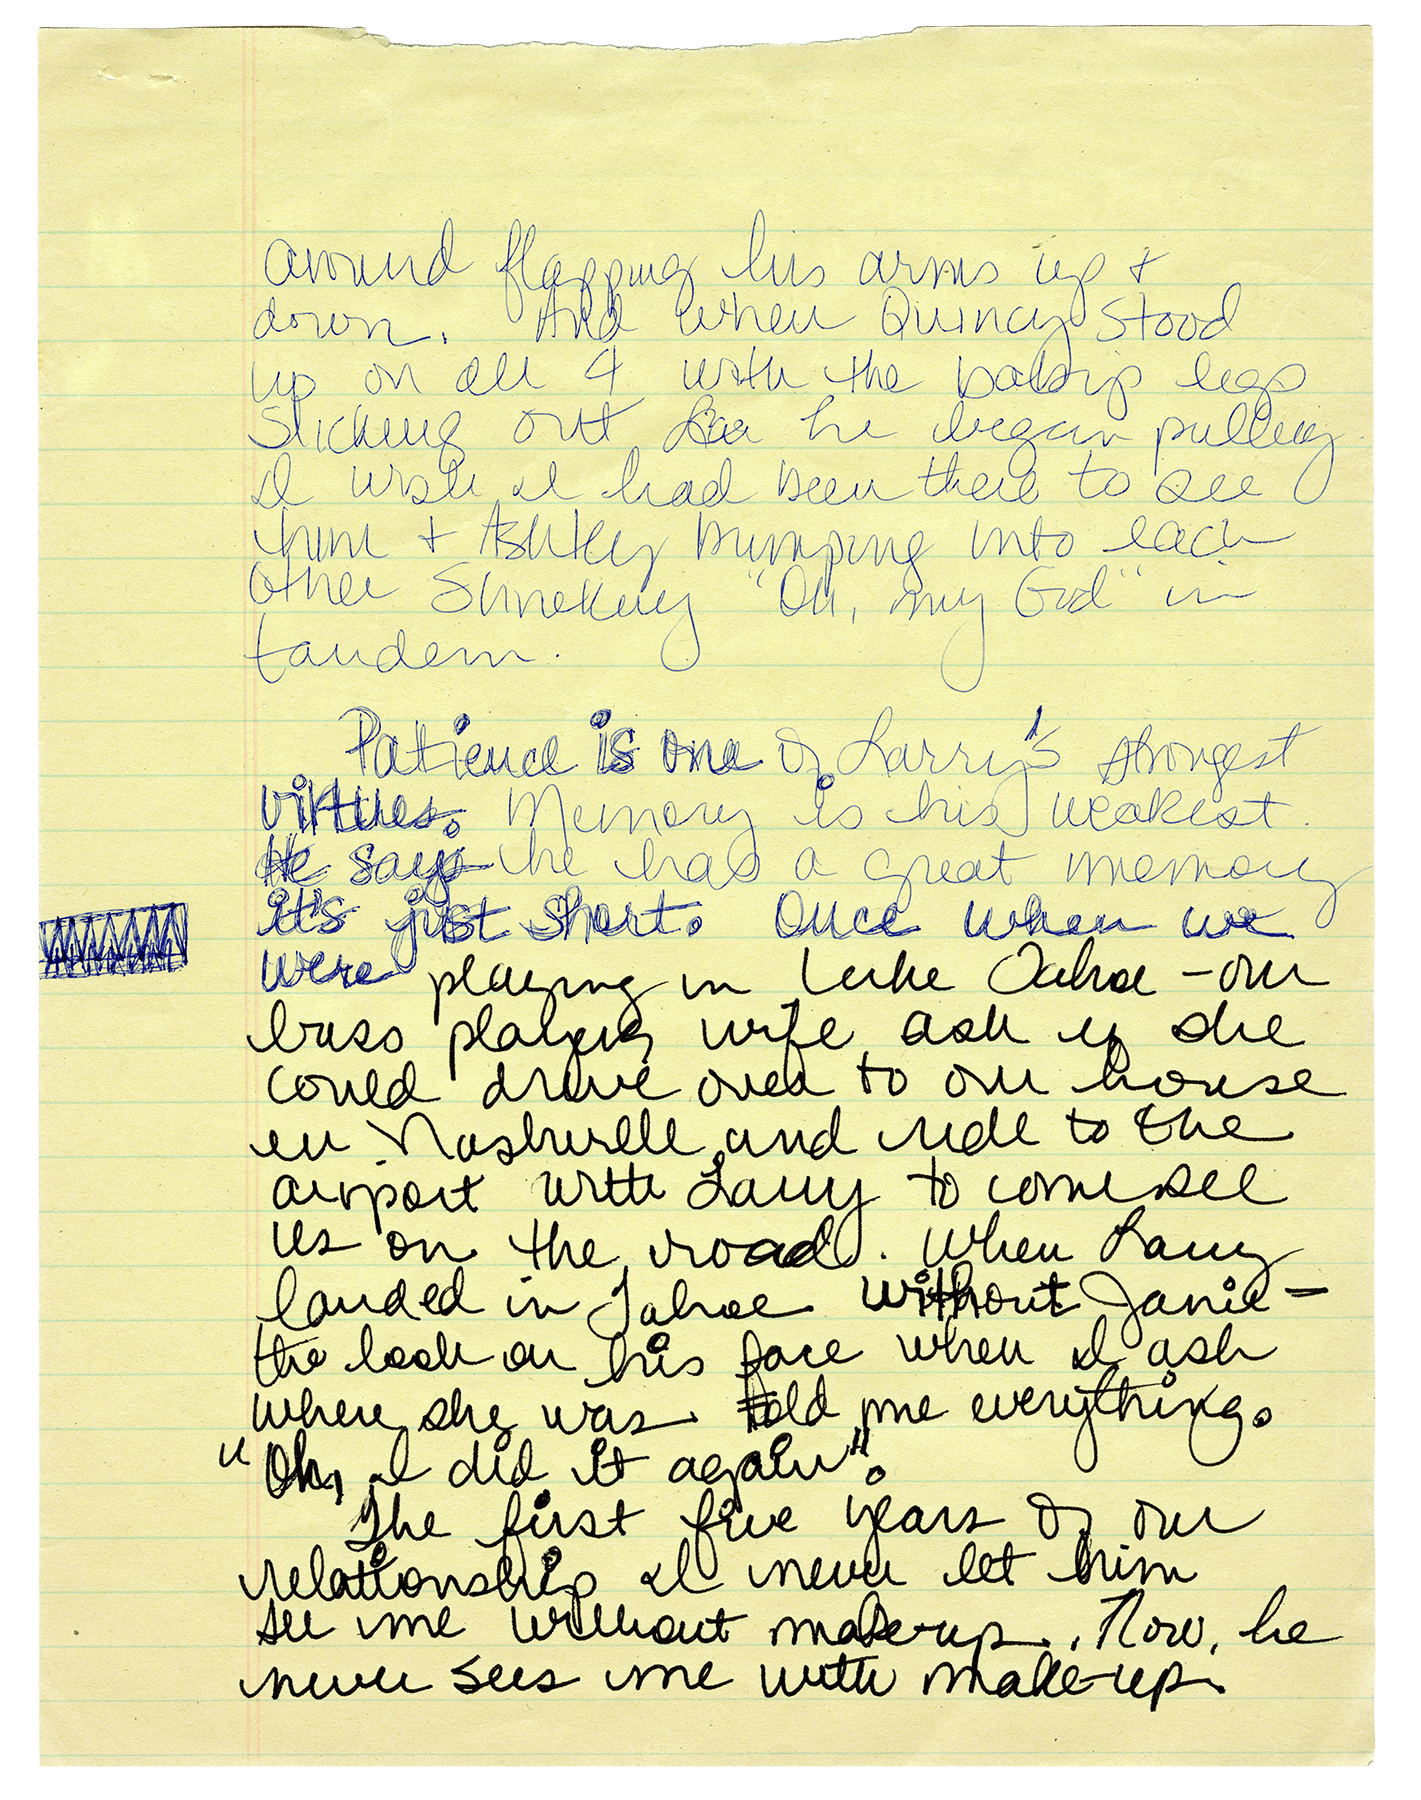 around flapping his arms up +
down. And when Quincy stood
up on all 4 with the baby's legs
sticking out he began pulling.
I wish I had been there to see
him + Ashley bumping into each
other shrieking "Oh, my God" in
tandem.
Patience is one of Larry's strongest
virtues. Memory is his weakest.
He says he has a great memory
it's just short. Once when we
were playing in Lake Tahoe - our
bass players wife ask if she
could drive over to our house
in Nashville and ride to the
airport with Larry to come see
us on the road. When Larry
landed in Tahoe without Janie -
the look on his face when I ask
where she was told me everything.
"Oh, I did it again".
The first five years of our
relationship I never let him
see me without makeup. Now, he
never sees me with make-up.